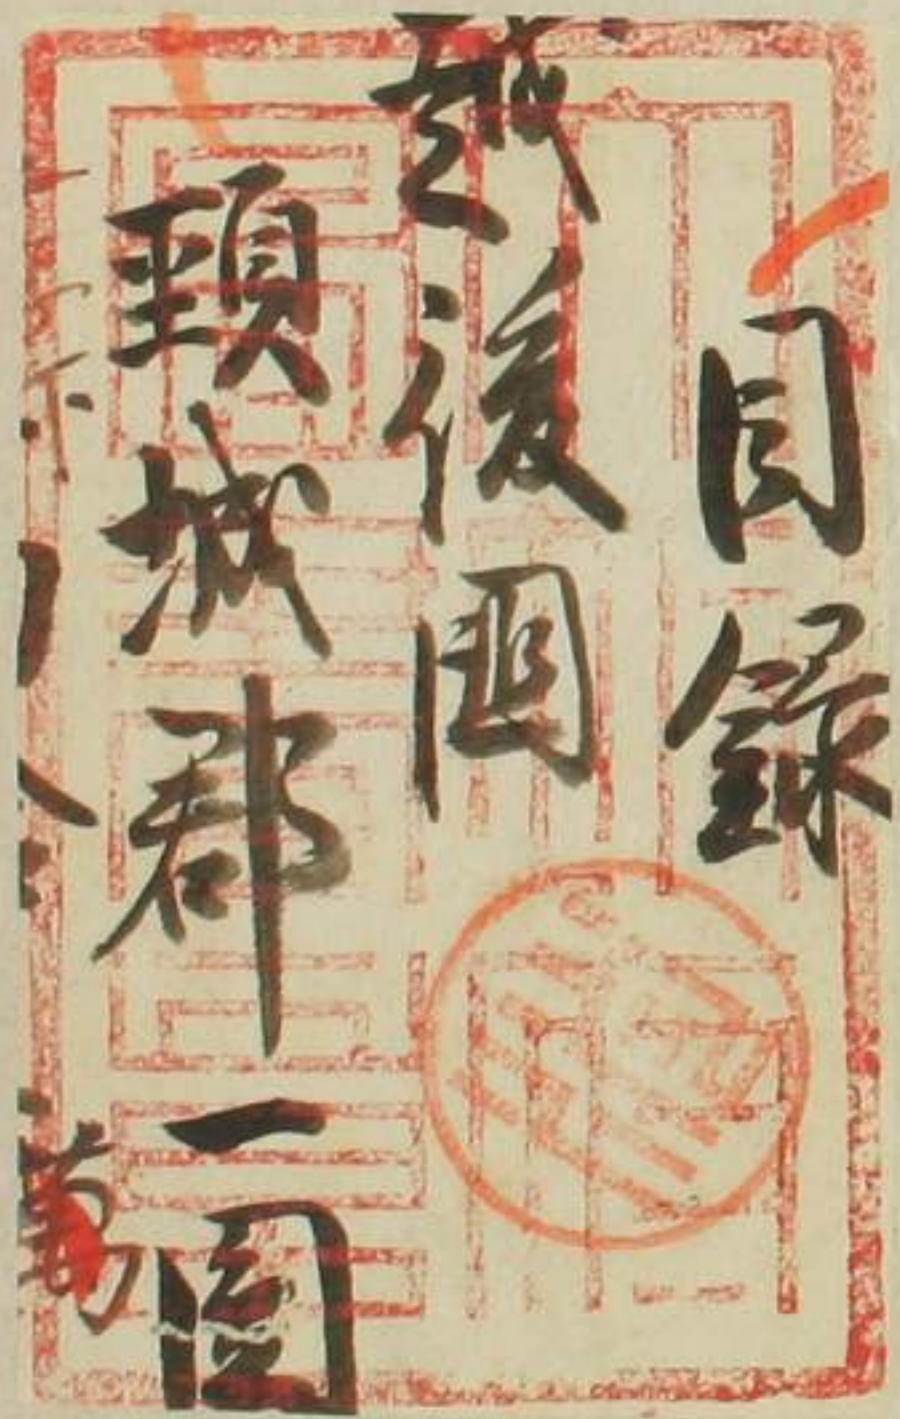 目録
越後國
頸城郡一圓